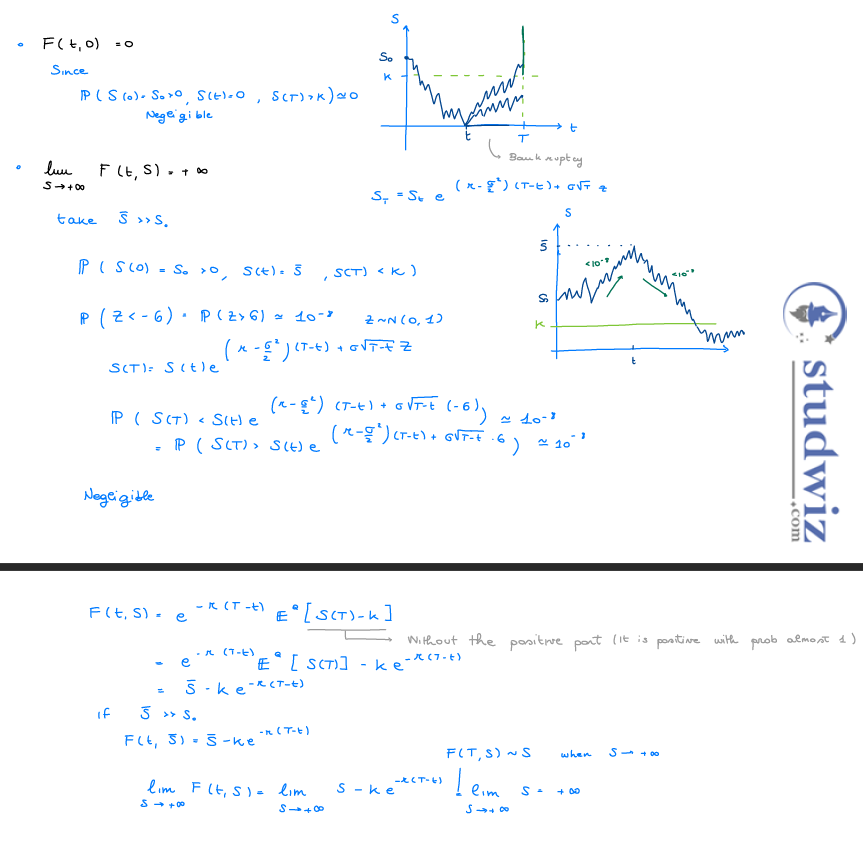 • F(t,0) = 0
Since
ℙ(S(0)=S₀>0, S(t)=0, S(T)>K)≃0
Negligible
S
S₀
K
t
T
t
Bankruptcy
• lim F(t,S) = +∞
S→+∞
S_T = S_t e^{(r-σ²/2)(T-t)+σ√T z}
take S̄ >> S₀
ℙ(S(0) = S₀ >0, S(t)= S̄, S(T) < K)
ℙ(Z<-6) = ℙ(Z>6) ≃ 10⁻⁸ Z~N(0,1)
S(T)= S(t) e^{(r-σ²/2)(T-t)+σ√T-t Z}
ℙ(S(T) < S(t) e^{(r-σ²/2)(T-t)+σ√T-t (-6)}) ≃ 10⁻⁸
= ℙ(S(T) > S(t) e^{(r-σ²/2)(T-t)+σ√T-t ·6}) ≃ 10⁻⁸
Negligible
S
S̄
<10⁻⁸
<10⁻⁸
S₀
K
t
studwiz
.com
F(t,S) = e^{-r(T-t)} 𝔼^Q[S(T)-k]
Without the positive part (It is positive with prob almost 1)
= e^{-r(T-t)} 𝔼^Q[S(T)] - ke^{-r(T-t)}
= S̄ - ke^{-r(T-t)}
if S̄ >> S₀
F(t,S̄) = S̄ - ke^{-r(T-t)}
F(T,S) ~ S when S→+∞
lim F(t,S) = lim S - ke^{-r(T-t)} = lim S = +∞
S→+∞ S→+∞ S→+∞